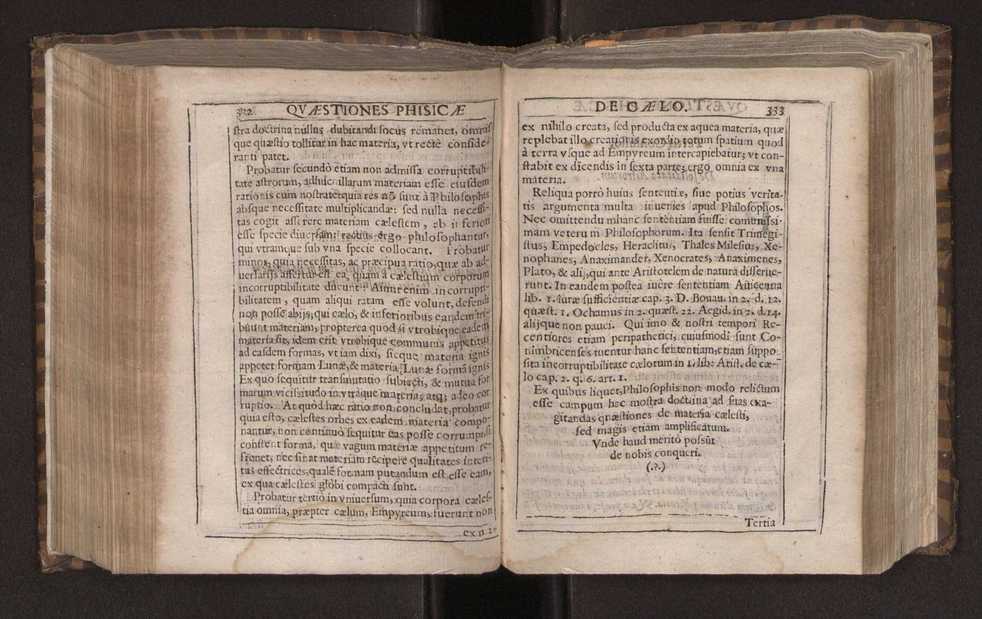 332 QVÆSTIONES PHISICÆ
stra doctrina nullus dubitandi locus remanet, omnis
que quæstio tollitur in hac materia, vt rectè conside-
ranti patet.
Probatur secundo etiam non admissa corruptibili-
tate astrorum, adhuc illarum materiam esse eiusdem
rationis cum nostrate quia res nõ sunt à Philosophis
absque necessitate multiplicandæ: sed nulla necessi-
tas cogit asserere materiam cælestem, ab inferiori
esse specie diuersam: rectius ergo philosophantur,
qui vtramque sub vna specie collocant. Probatur
minor, quia necessitas, ac præcipua ratio, quæ ab ad-
uersarijs affertur est ea, quam à cælestium corporum
incorruptibilitate ducunt: Aiunt enim incorrupti-
bilitatem, quam aliqui ratam esse volunt, defendi
non posse ab ijs, qui cælo, & inferioribus eandem tri-
buunt materiam, propterea quod si vtrobique eadem
materia sit, idem erit vtrobique communis appetitus
ad easdem formas, vt iam dixi, sicque materia ignis
appetet formam Lunæ, & materia Lunæ formã ignis
Ex quo sequitur transmutatio subiecti, & mutua for
marum vicissitudo in vtraque materia, atq; adeo cor
ruptio. At quód hæc ratio non concludat, probatur
quia esto, cælestes orbes ex eadem materia compo-
nantur, non continuò sequitur eas posse corrumpi, si
constent forma, quæ vagum materiæ appetitum re-
frenet, nec sinat materiam recipere qualitates interi-
tus effectrices, qualẽ formam putandum est esse eam,
ex qua cælestes globi compacti sunt.
Probatur tertiò in vniuersum, quia corpora cæles-
tia omnia, præpter cælum, Empyreum, fuerunt non
ex n
DE CÆLO. 333
ex nihilo creata, sed producta ex aquea materia, quæ
replebat illo creationis exordio totum spatium quod
à terra vsque ad Empyreum intercapiebatur, vt con-
stabit ex dicendis in sexta parte, ergo omnia ex vna
materia.
Reliqua porrò huius sententiæ, siue potius verita-
tis argumenta multa inuenies apud Philosophos.
Nec omittendum hanc sententiam fuisse comunissi-
mam veterum Philosophorum. Ita sensit Trimegi-
stus, Empedocles, Heraclitus, Thales Milesius, Xe-
nophanes, Anaximander, Xenocrates, Anaximenes,
Plato, & alij, qui ante Aristotelem de natura disserue-
runt. In eandem postea iuere sententiam Auicenna
lib. 1. suræ sufficientiæ cap. 3. D. Bouau. in 2. d. 12.
quæst. 1. Ochamus in 2. quæst. 22. Aegid. in 2. d. 14.
alijque non pauci. Qui imo & nostri tempori Re-
centiores etiam peripathetici, cuiusmodi sunt Co-
nimbricenses tuentur hanc sententiam, etiam suppo-
sita incorruptibilitate cælorum in 1. lib: Arist. de cæ-
lo cap. 2. q. 6. art. 1.
Ex quibus liquet, Philosophis non modo relictum
esse campum hac nostra doctrina ad suas exa-
gitandas quæstiones de materia cælesti,
sed magis etiam amplificatum.
Vnde haud meritò possũt
de nobis conqueri.
(.?.)
Tertia